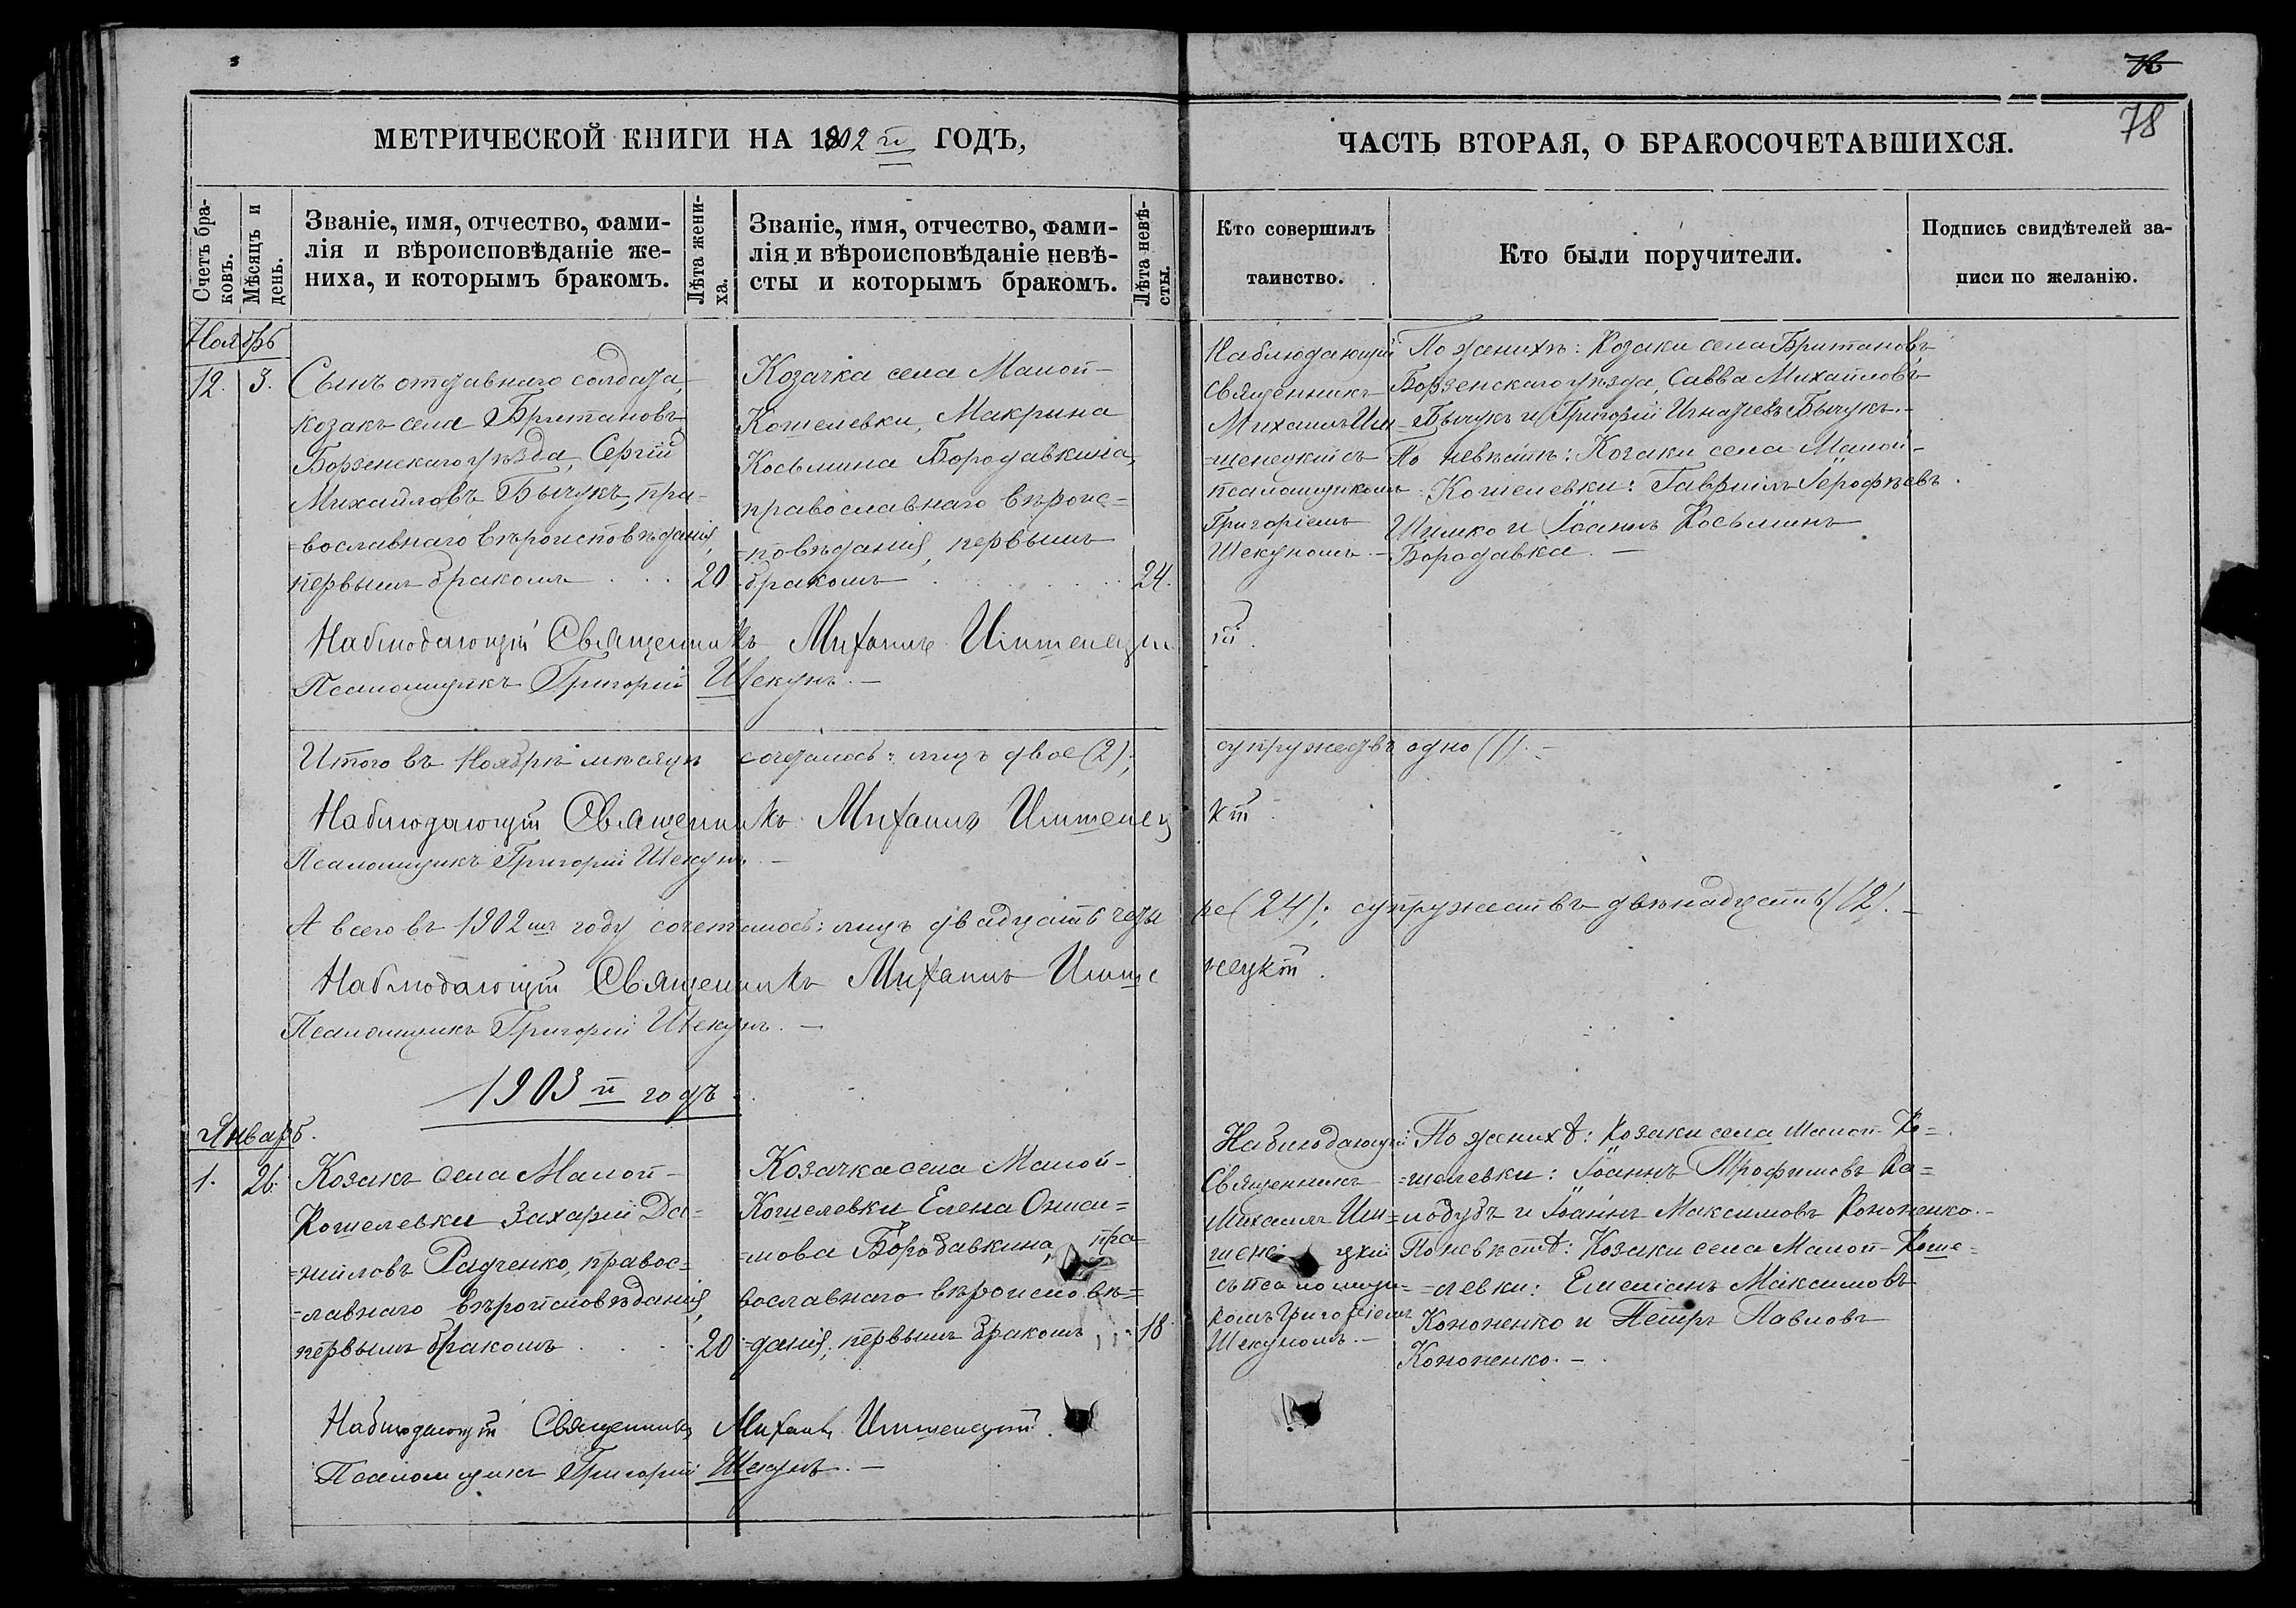 78
МЕТРИЧЕСКОЙ КНИГИ НА 1902 й ГОДЪ,
ЧАСТЬ ВТОРАЯ, О БРАКОСОЧЕТАВШИХСЯ.
Счетъ бра-
ковъ.
Мѣсяцъ и
день.
Званіе, имя, отчество, фами-
лія и вѣроисповѣданіе же-
ниха, и которымъ бракомъ.
Лѣта жени-
ха.
Званіе, имя, отчество, фами-
лія и вѣроисповѣданіе невѣ-
сты и которымъ бракомъ.
Лѣта невѣ-
сты.
Кто совершилъ
таинство.
Кто были поручители.
Подпись свидѣтелей за-
писи по желанію.
Ноябрь
12. 3.
Сынъ отставнаго солдата,
козакъ села Британовъ
Борзенскаго уѣзда, Сергій
Михайловъ Бычукъ, пра-
=вославнаго вѣроисповѣданія,
первымъ бракомъ 20
Козачка села Малой-
Кошелевки, Макрина
Косьмина Бородавкина,
православнаго вѣроис=
=повѣданія, первымъ
бракомъ 24.
Наблюдающій
Священникъ
Михаилъ Иш=
=шенецкій съ
псаломщикомъ
Григоріемъ
Шекуномъ. –
По женихѣ: Козаки села Британовъ
Борзенскаго уѣзда, Савва Михайловъ
Бычукъ и Григорій Игнатіевъ Бычукъ. –
По невѣстѣ: Козаки села Малой-
Кошелевки: Гавріилъ Іерофѣевъ
Шимко и Іоаннъ Косьминъ
Бородавка. –
Наблюдающій Священникъ Михаилъ Ишшенецкій.
Псаломщикъ Григорій Шекунъ. –
Итого въ Ноябрѣ мѣсяцѣ сочеталось: лицъ двое (2); супружествъ одно (1). –
Наблюдающій Священникъ Михаилъ Ишшенецкій.
Псаломщикъ Григорій Шекунъ. –
А всего въ 1902 мъ году сочеталось: лицъ двадцать четыре (24); супружествъ двѣнадцать (12). –
Наблюдающій Священникъ Михаилъ Ишшенецкій.
Псаломщикъ Григорій Шекунъ. –
1903 й годъ.
Январь.
1. 26.
Козакъ села Малой-
Кошелевки Захарій Да=
=ніиловъ Радченко, правос=
=лавнаго вѣроисповѣданія,
первымъ бракомъ 20
Козачка села Малой-
Кошелевки Елена Ониси=
=мова Бородавкина, пра=
вославнаго вѣроисповѣ=
=данія, первымъ бракомъ 18
Наблюдающій
Священникъ
Михаилъ Иш=
шене цкій
съ псаломщи=
комъ Григоріемъ
Шекуномъ. –
По женихѣ: Козаки села Малой-Ко=
=шелевки: Іоаннъ Трофимовъ Ка=
=лодубъ и Іоаннъ Максимовъ Кононенко. –
По невѣстѣ: Козаки села Малой-Коше=
=левки: Емеліанъ Максимовъ
Кононенко и Петръ Павловъ
Кононенко. –
Наблюдающій Священникъ Михаилъ Ишшенецкій.
Псаломщикъ Григорій Шекунъ. –